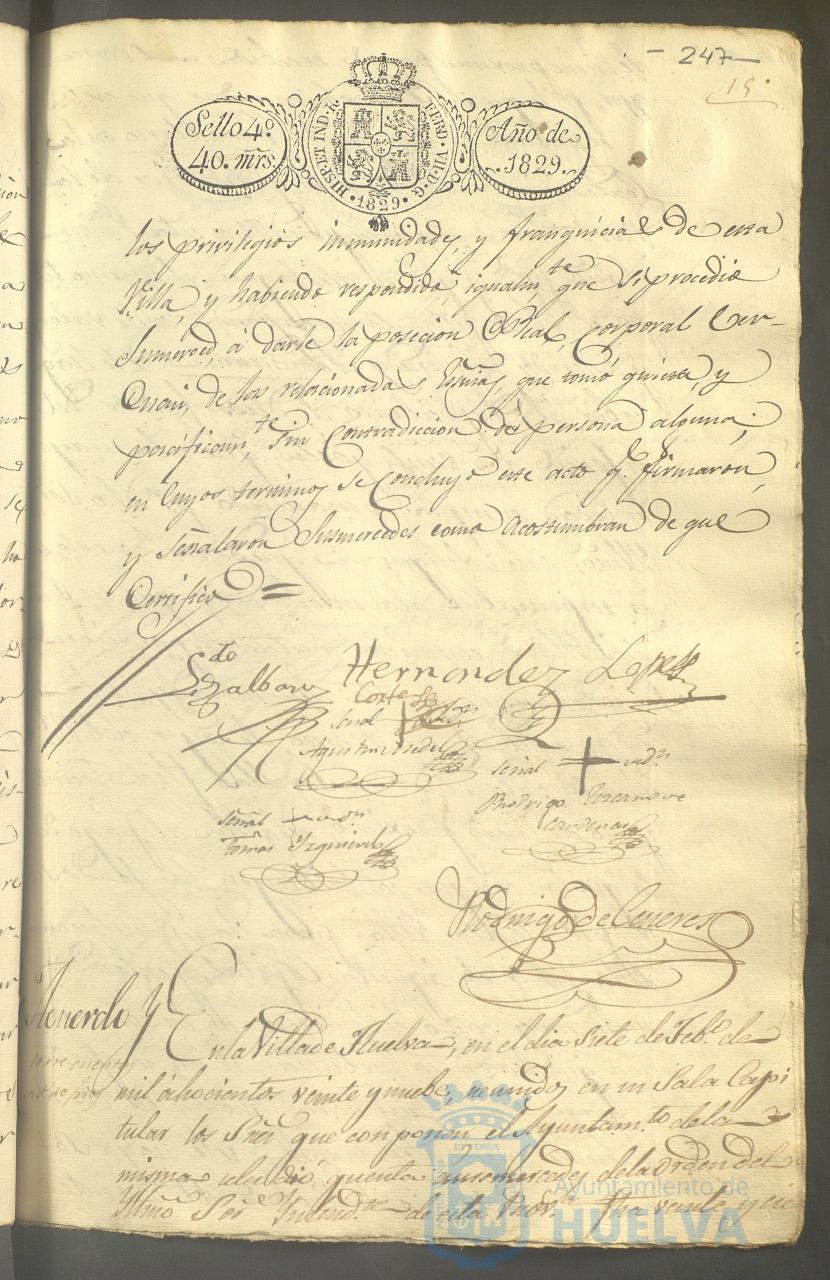 - 247 -
15.
Sello 4º
40. mrs.
HISP. ET IND. R. FERD. VII. D. G.
· 1829 ·
Año de
1829.
los privilegios inmunidades, y franquicias de esta
Villa, y habiendo respondido igualmte que si procedio
Sumerced, á darle la posecion Real, corporal
de las relacionadas que tomó quieta, y
pacificamte sin Contradiccion de persona alguna,
en cuyos terminos se Concluyó este acto q.e firmaron,
y señalaron Susmercedes como acostumbran de que
Certifico =
Hernandez Lopez
Cortes
Señal +
Agustin
Señal + de dn
Rodrigo
Cardenas
Señal + de dn
Tomas Izquierdo
Rodrigo de Ceneres
Acuerdo y En la Villa de Huelva, en el dia siete de Feb.o de
mil ahocientos veinte y nuebe, reunidos en su Sala Capi
tular los Sres que componen el Ayuntam.to de la
misma se le dió quenta a susmercedes de la orden del
Yltmo Sor Intend.te de esta Prov.a fha veinte y
ET TERRÆ
Ayuntamiento de
HUELVA